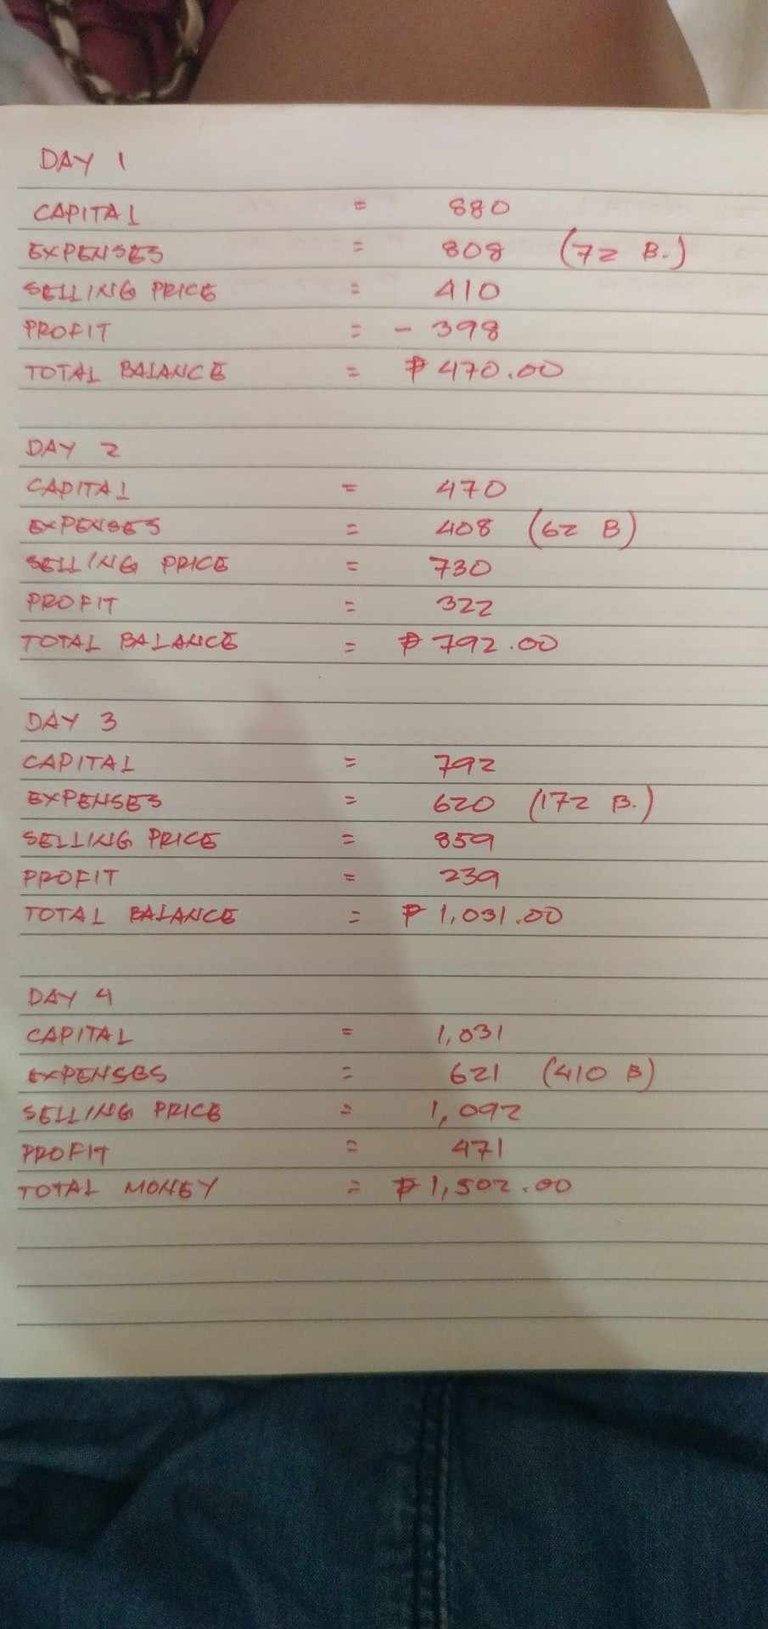 DAY 1
CAPITAL = 880
EXPENSES = 808 (72 B.)
SELLING PRICE = 410
PROFIT = - 398
TOTAL BALANCE = ₱ 470.00
DAY 2
CAPITAL = 470
EXPENSES = 408 (62 B)
SELLING PRICE = 730
PROFIT = 322
TOTAL BALANCE = ₱ 792.00
DAY 3
CAPITAL = 792
EXPENSES = 620 (172 B.)
SELLING PRICE = 859
PROFIT = 239
TOTAL BALANCE = ₱ 1,031.00
DAY 4
CAPITAL = 1,031
EXPENSES = 621 (410 B)
SELLING PRICE = 1,092
PROFIT = 471
TOTAL MONEY = ₱ 1,502.00